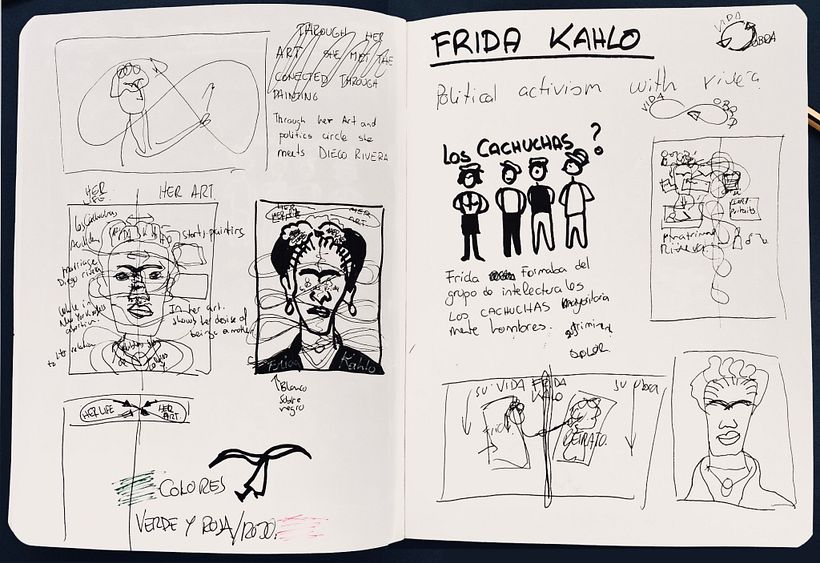 THROUGH HER
ART SHE MET THE
CONECTED THROUGH
PAINTING
Through her Art and
politics circle she
meets DIEGO RIVERA
HER
LIFE
HER ART
Los Cachuchas
Accident
Marriage
Diego rivera
While in
New York
abortion
starts painting
In her art
shows her desire of
being a mother
HER LIFE
HER
ART
Frida Kahlo
Blanco
sobre
negro
HER LIFE
HER
ART
COLORES
VERDE Y ROSA/ROJO.
FRIDA KAHLO
VIDA
OBRA
Political activism with rivera
VIDA
OBRA
LOS CACHUCHAS ?
Frida Formaba del
grupo de intelectuales
LOS CACHUCHAS mayoritaria
mente hombres.
DOLOR
SU VIDA FRIDA
KAHLO
SU OBRA
Frida
RETRATO